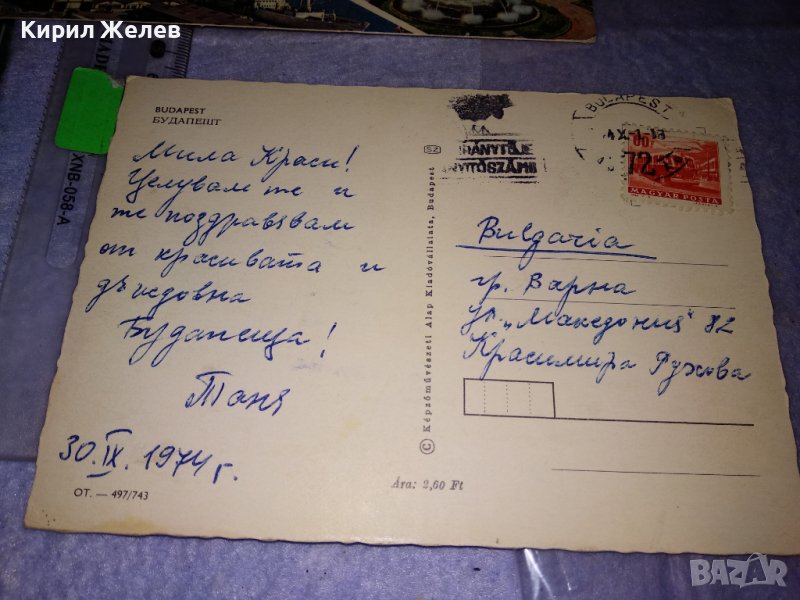 Кирил Желев
XNB-058-A
BUDAPEST
БУДАПЕШТ
Мила Краси!
Целувам те и
те поздравявам
от красивата и
дъждовна
Будапеща!
Таня
30.IX.1974 г.
ОТ. — 497/743
© Képzőművészeti Alap Kiadóvállalata, Budapest
SZ
Ára: 2,60 Ft
BUDAPEST
MAGYAR POSTA
Bulgaria
гр. Варна
ул. „Македония" 82
Красимира Ружова
BAZAR